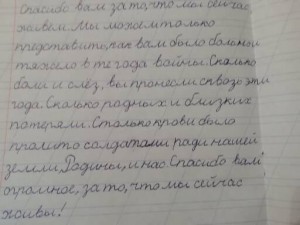 Спасибо вам за то, что мы сейчас
живем. Мы можем только
представить, как вам было больно и
тяжело в те года войны. Сколько
боли и слёз, вы пронесли сквозь эти
года. Сколько родных и близких
потеряли. Столько крови было
пролито солдатами ради нашей
земли, Родины, и нас. Спасибо вам
огромное, за то, что мы сейчас
живы!